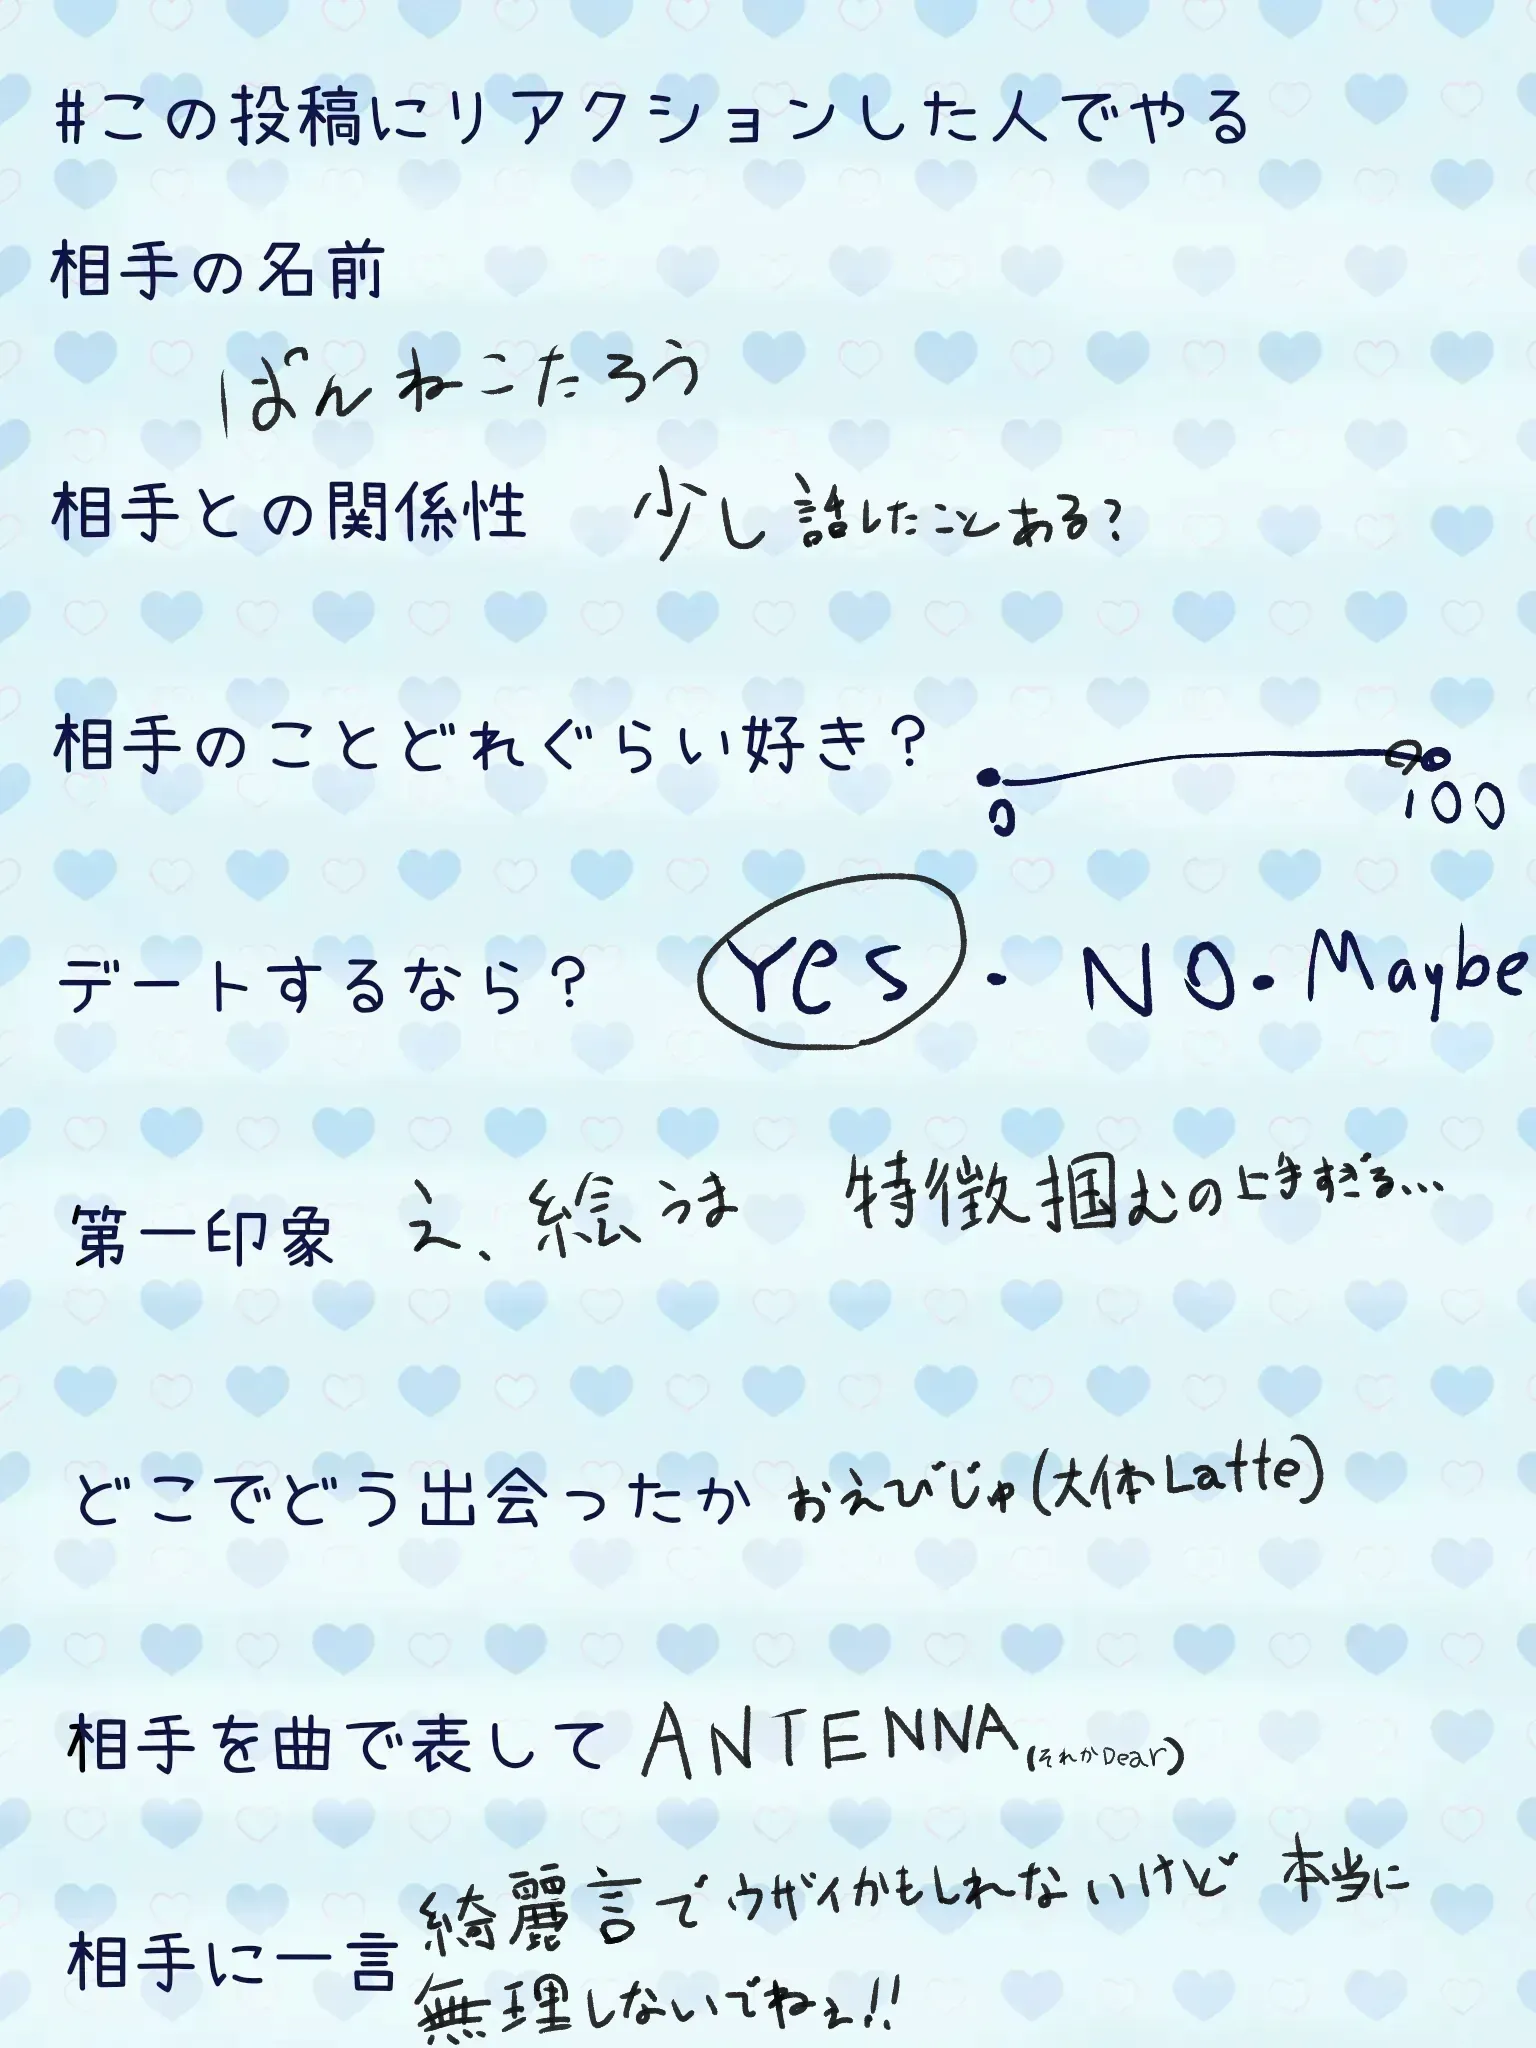 #この投稿にリアクションした人でやる
相手の名前
ばんねこたろう
相手との関係性 少し話したことある?
相手のことどれぐらい好き?
0 100
デートするなら? Yes・NO・Maybe
第一印象 え、絵うま 特徴掴むの上手すぎる…
どこでどう出会ったか おえびじゅ(大体Latte)
相手を曲で表して ANTENNA(それかDear)
相手に一言 綺麗言でウザイかもしれないけど 本当に
無理しないでねぇ!!